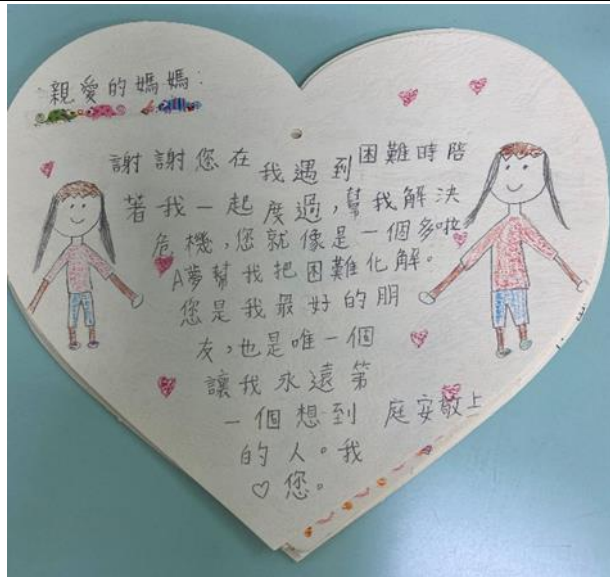 親愛的媽媽:
謝謝您在我遇到困難時陪
著我一起度過,幫我解決
危機,您就像是一個多啦
A夢幫我把困難化解。
您是我最好的朋
友,也是唯一個
讓我永遠第
一個想到
的人。我
♡您。
庭安敬上